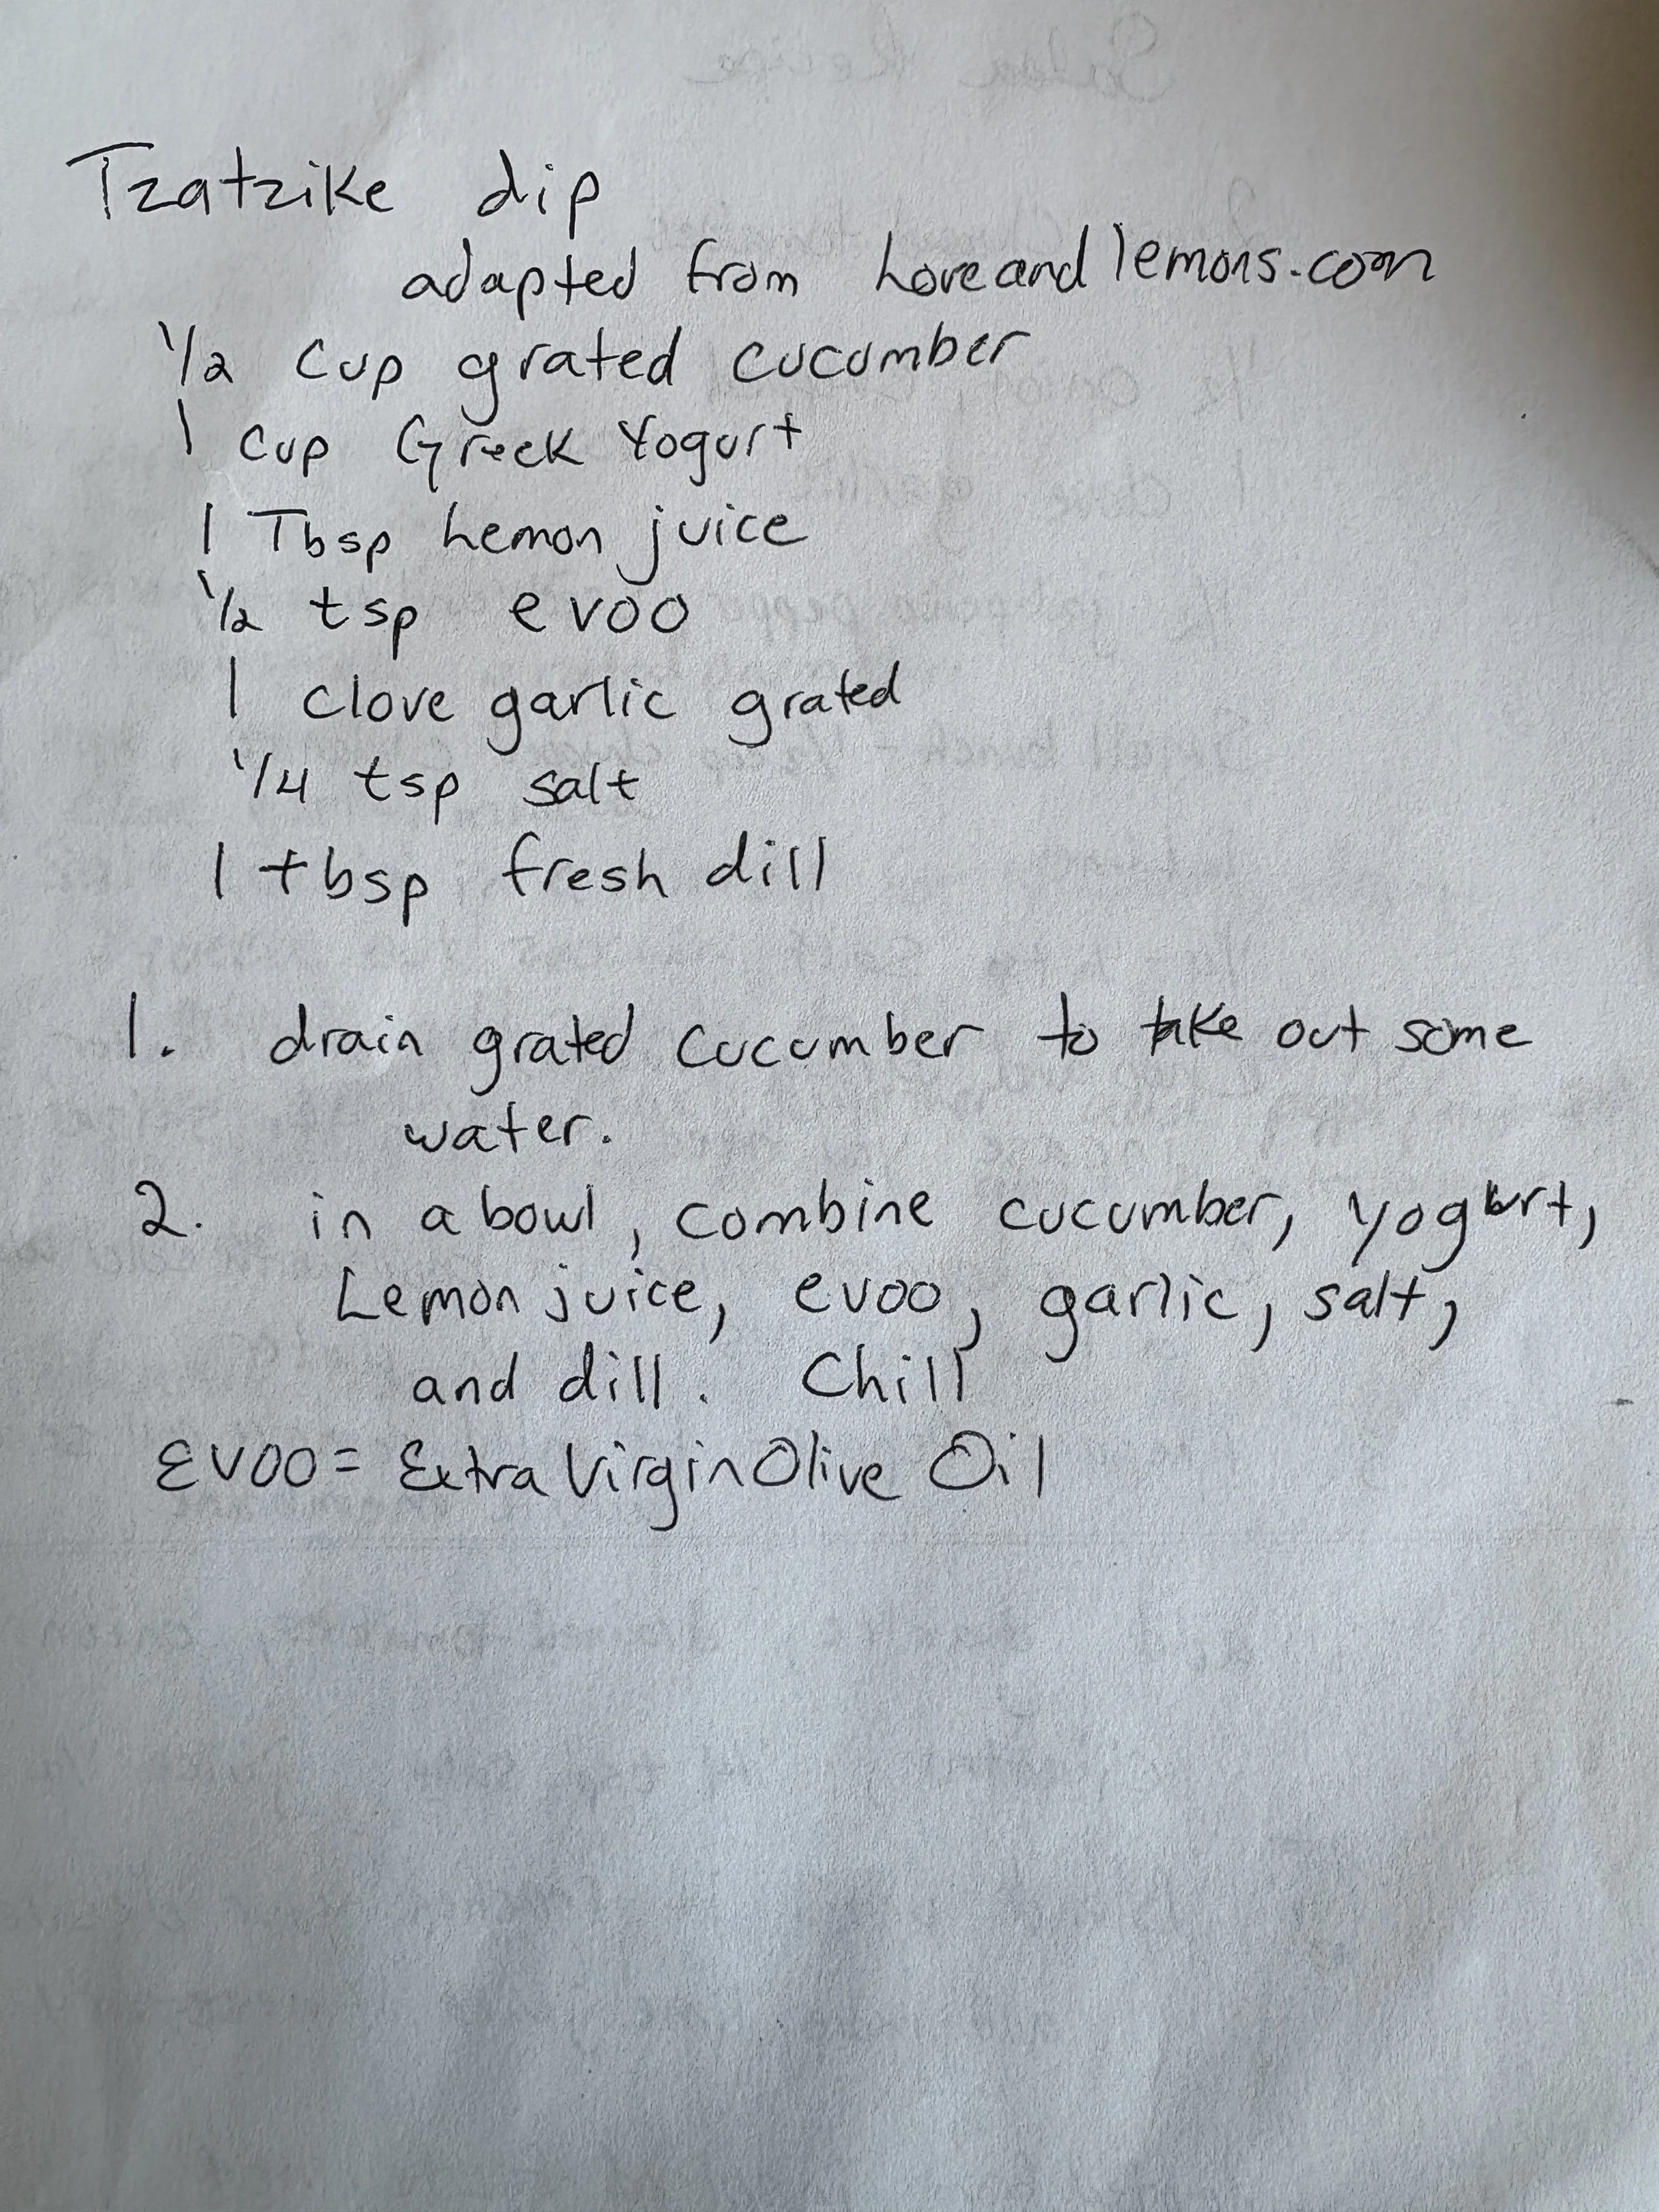 Tzatzike dip
adapted from Loveandlemons.com
1/2 Cup grated cucumber
1 Cup Greek Yogurt
1 Tbsp Lemon juice
1/2 tsp evoo
1 clove garlic grated
1/4 tsp salt
1 tbsp fresh dill
1. drain grated cucumber to take out some
water.
2. in a bowl, combine cucumber, yogurt,
Lemon juice, evoo, garlic, salt,
and dill. Chill
EVOO = Extra Virgin Olive Oil